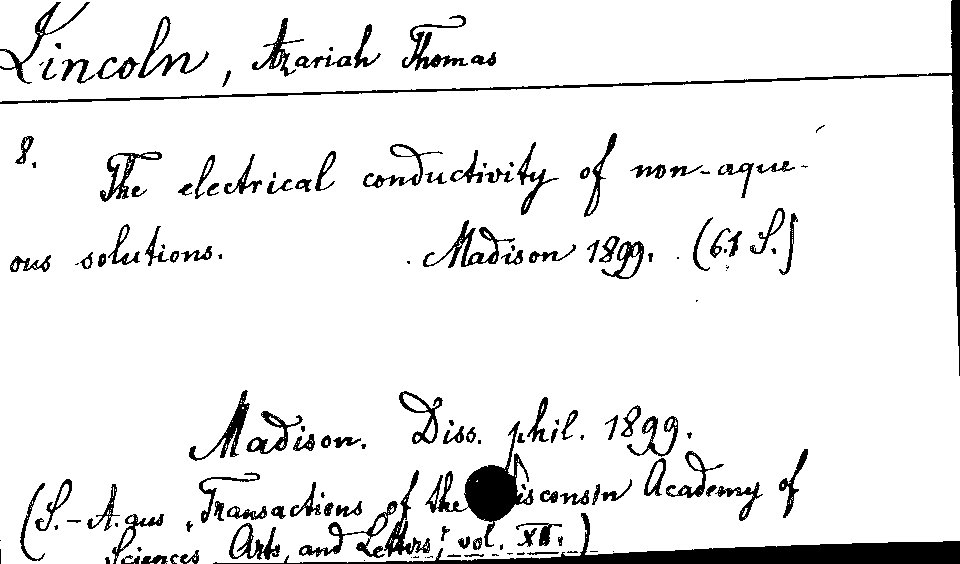 Lincoln, Azariah Thomas
8. The electrical conductivity of non-aque-
ous solutions. Madison 1899. (61 S.)
Madison. Diss. phil. 1899.
(S.-A. aus „Transactions of the Wisconsin Academy of
Sciences Arts, and Letters," vol. XII.)